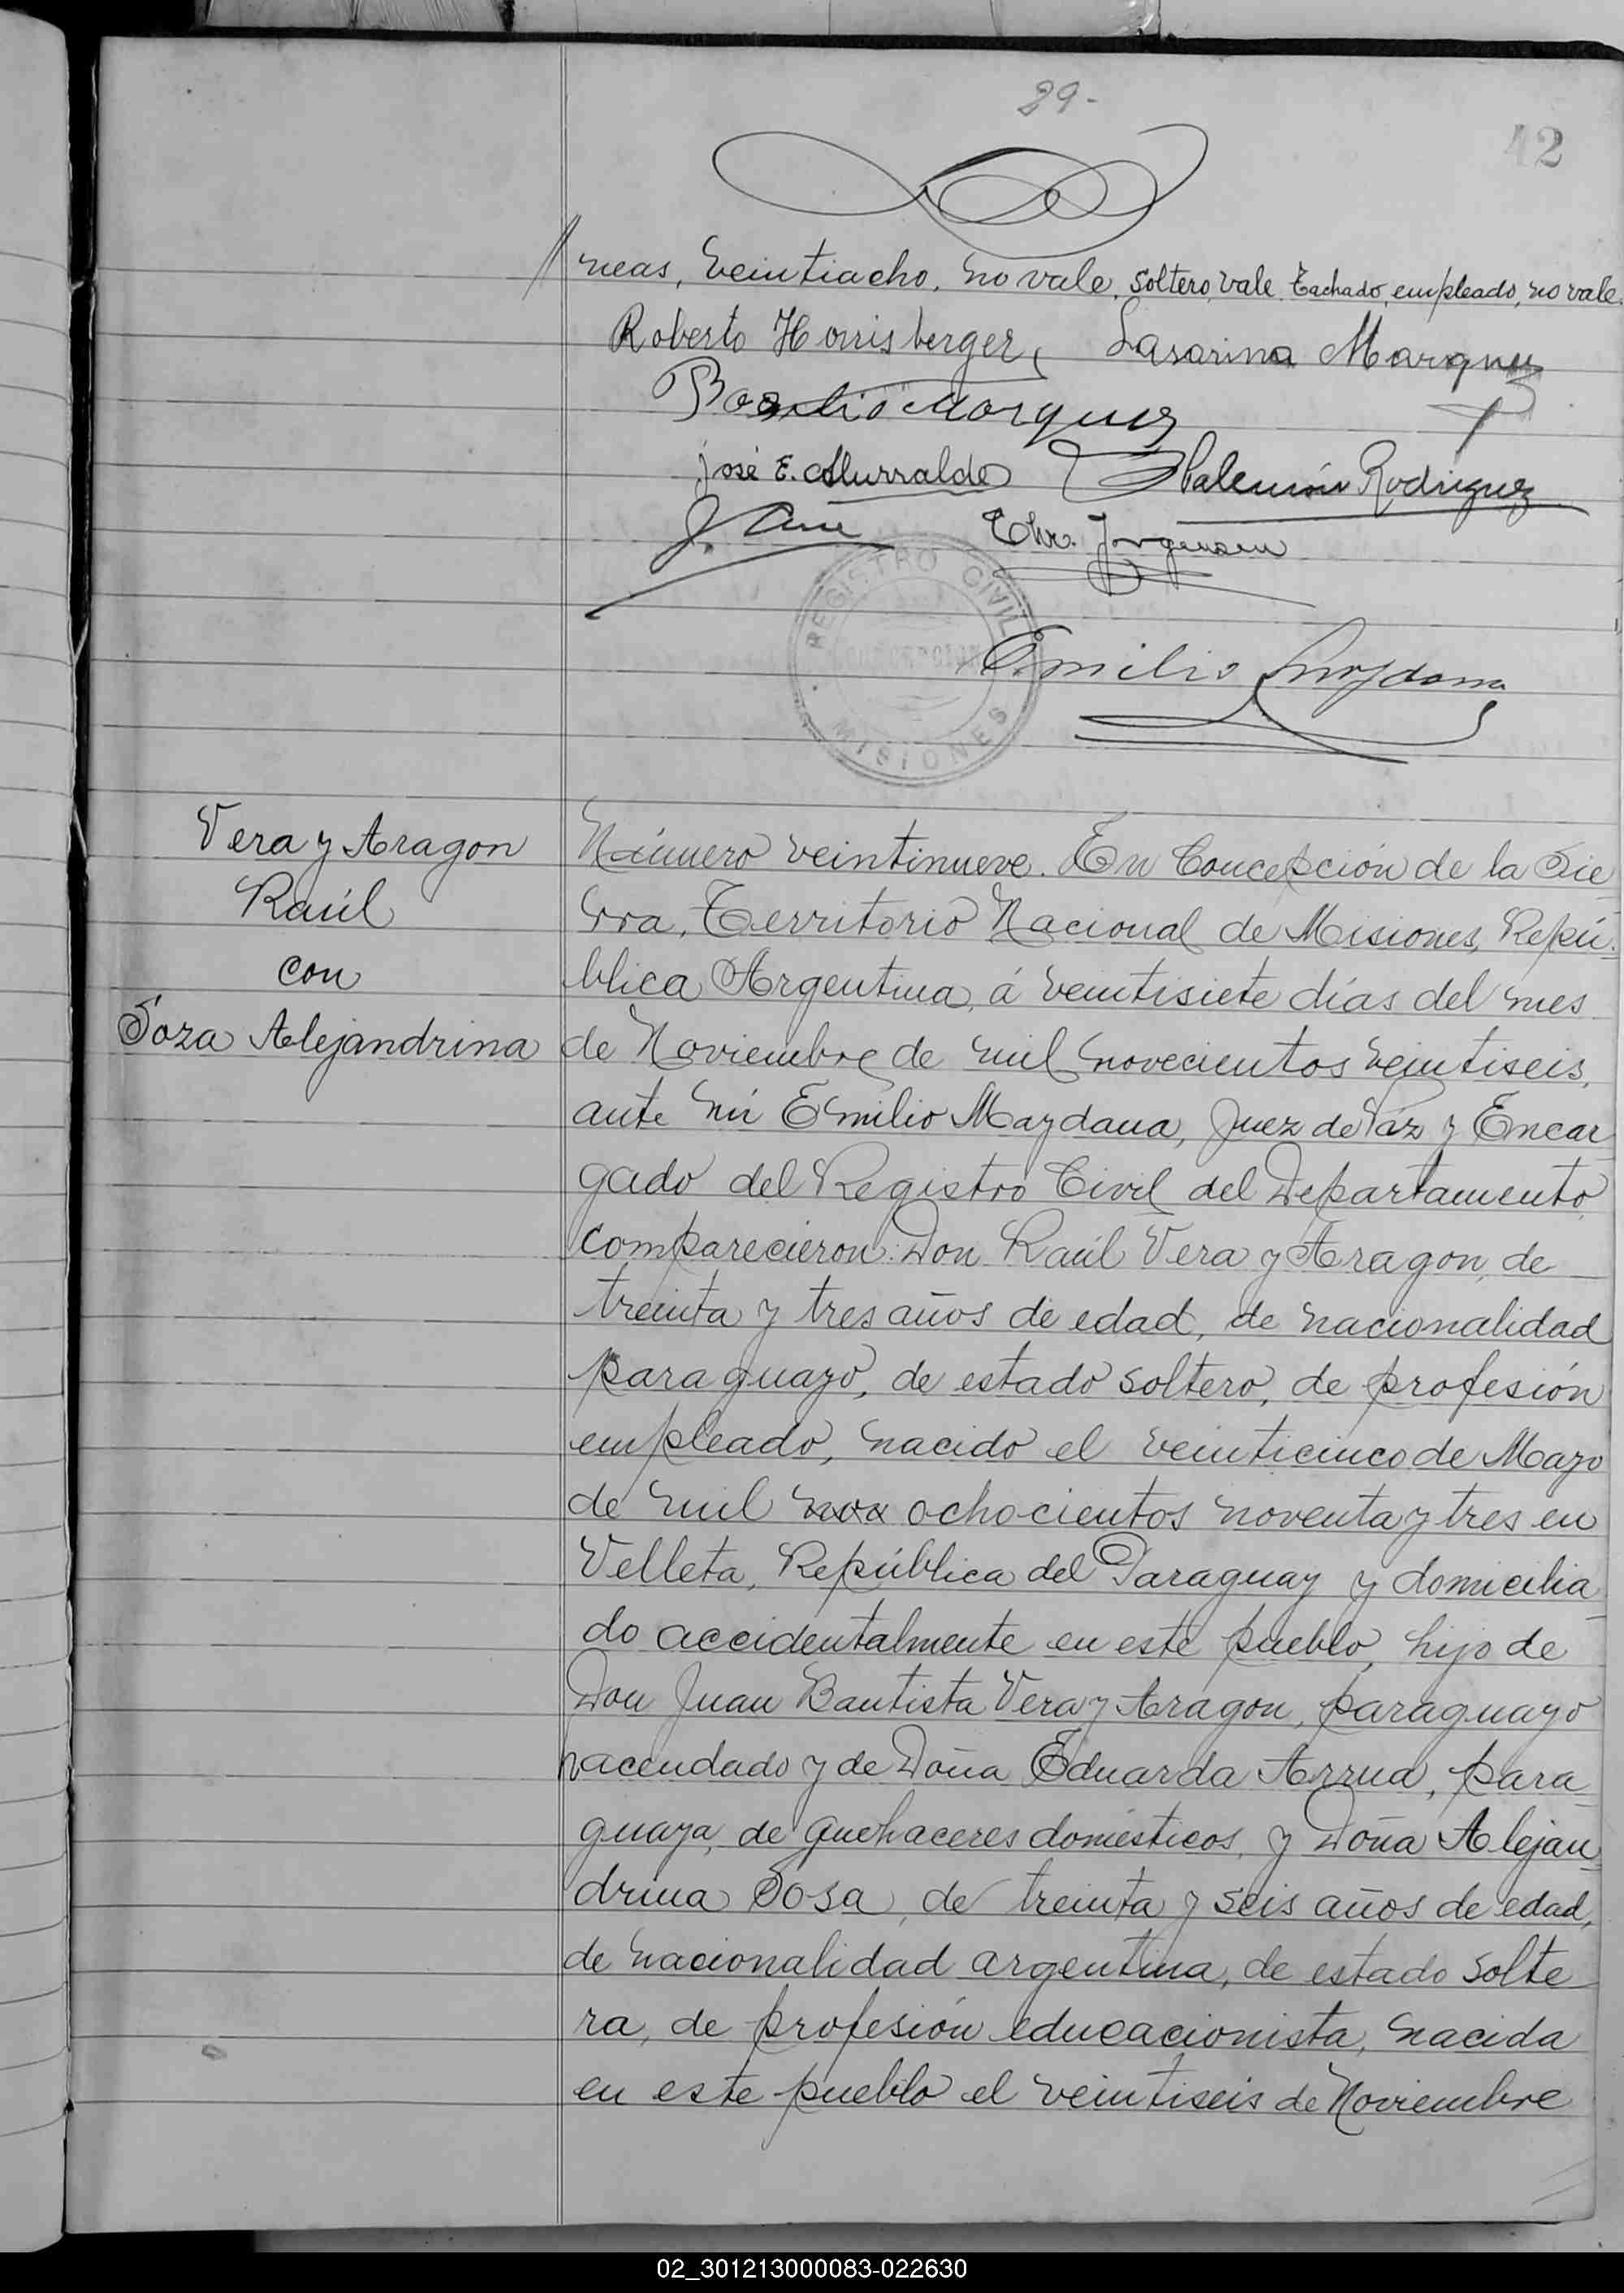 29-
42
neas, veintiocho, no vale, soltero, vale. Tachado, empleado, no vale.
Roberto Horrisberger, Lasarina Marquez
Basilio Marquez
José E. Murralde Valentín Rodriguez
Chr. Jorgensen
REGISTRO CIVIL
MISIONES
Emilio Maydana
Vera y Aragon
Raúl
con
Soza Alejandrina
Número veintinueve. En Concepción de la Sie
rra, Territorio Nacional de Misiones, Repú-
blica Argentina, á veintisiete días del mes
de Noviembre de mil novecientos veintiseis,
ante mi Emilio Maydana, Juez de Paz y Encar
gado del Registro Civil del Departamento,
comparecieron: Don Raúl Vera y Aragon, de
treinta y tres años de edad, de nacionalidad
paraguayo, de estado soltero, de profesión
empleado, nacido el veinticinco de Mayo
de mil ochocientos noventa y tres en
Velleta, República del Paraguay y domicilia
do accidentalmente en este pueblo, hijo de
Don Juan Bautista Vera y Aragon, paraguayo
hacendado y de Doña Eduarda Arrua, para
guaya, de quehaceres domésticos, y Doña Alejan
drina Sosa, de treinta y seis años de edad,
de nacionalidad argentina, de estado solte
ra, de profesión educacionista, nacida
en este pueblo el veintiseis de Noviembre
02_301213000083-022630